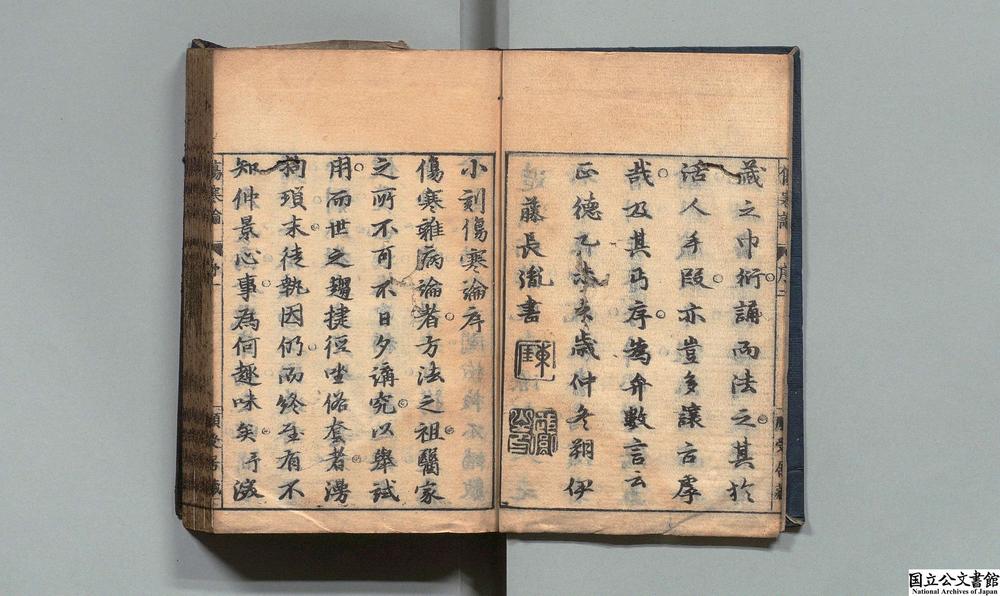 藏之巾衍誦而法之其於
活人手段亦豈多讓古虖
哉及其丐序為弁數言云
正德乙未歲仲冬朔伊
藤長胤書
小刻傷寒論序
傷寒雜病論者方法之祖醫家
之所不可不日夕講究以舉試
用而世之趨捷徑坐俗套者濔
狥瑣末徒執因仍而終至有不
知仲景心事為何趣味矣
傷寒論
国立公文書館
National Archives of Japan